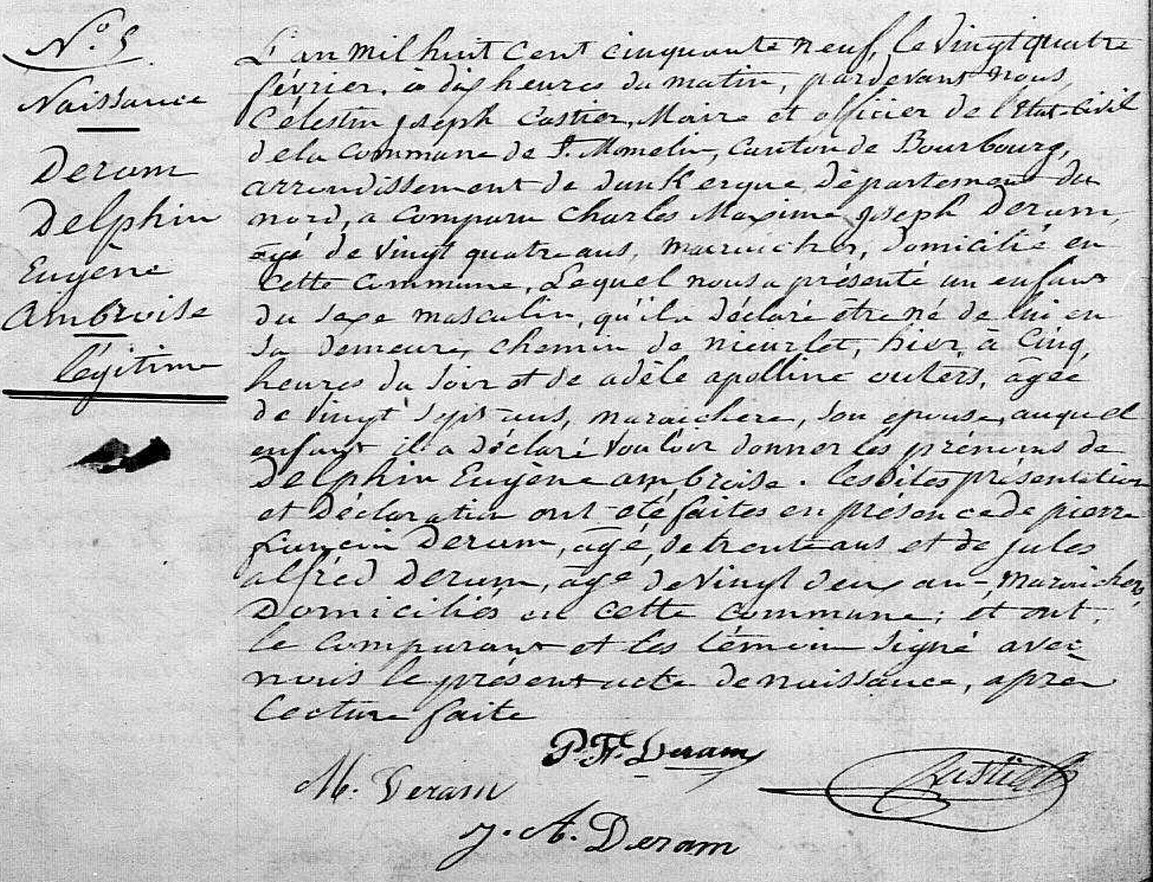 N.o 5
Naissance
Deram
Delphin
Eugène
Ambroise
légitime
L'an mil huit cent cinquante neuf, le vingt quatre
février, à dix heures du matin, pardevant nous,
Célestin Joseph Castier, Maire et officier de l'état-civil
de la commune de St. Momelin, Canton de Bourbourg,
arrondissement de dunkerque département du
nord, a comparu Charles Maxime Joseph Deram,
âgé de vingt quatre ans, maraicher, domicilié en
cette commune, Lequel nous a présenté un enfant
du sexe masculin, qu'il a déclaré être né de lui en
sa demeure, chemin de nieurlet, hier, à Cinq
heures du soir et de adèle apolline outers, âgée
de vingt sept ans, maraichère, son epouse, auquel
enfant il a déclaré vouloir donner les prénoms de
Delphin Eugène ambroise. Lesdites présentation
et déclaration ont été faites en présence de pierre
Deram, âgé de trente ans et de jules
alfred Deram, âgé de vingt deux ans, Maraichers,
Domiciliés en cette commune; et ont,
le comparant et les témoins signé avec
nous le présent acte de naissance, après
Lecture faite
P. F. Deram
Castier
M. Deram
J. A. Deram